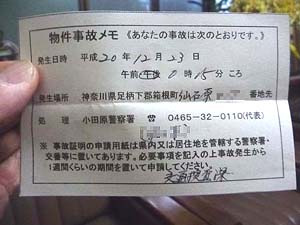 物件事故メモ 《あなたの事故は次のとおりです。》
発生日時 平成 20年 12月 23日
午前・午後 0時 15分 ころ
発生場所 神奈川県足柄下郡箱根町仙石原 番地先
処理 小田原警察署 ☎ 0465-32-0110(代表)
※ 事故証明の申請用紙は県内又は居住地を管轄する警察署・
交番等に置いてあります。必要事項を記入の上事故発生から
1週間くらいの期間を置いて申請してください。
交通捜査係